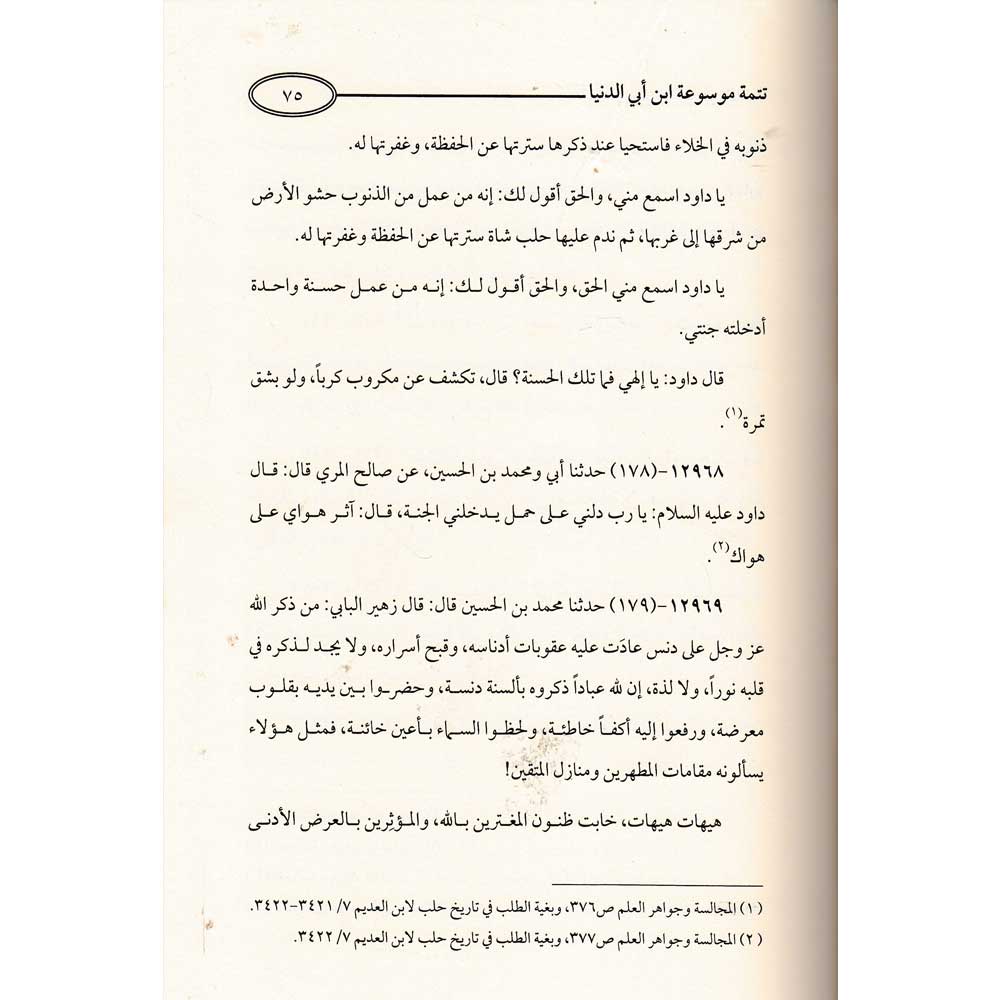 تتمة موسوعة ابن أبي الدنيا ٧٥
ذنوبه في الخلاء فاستحيا عند ذكرها سترتها عن الحفظة، وغفرتها له.
يا داود اسمع مني، والحق أقول لك: إنه من عمل من الذنوب حشو الأرض
من شرقها إلى غربها، ثم ندم عليها حلب شاة سترتها عن الحفظة وغفرتها له.
يا داود اسمع مني الحق، والحق أقول لك: إنه من عمل حسنة واحدة
أدخلته جنتي.
قال داود: يا إلهي فما تلك الحسنة؟ قال، تكشف عن مكروب كرباً، ولو بشق
تمرة(١).
١٢٩٦٨-(١٧٨) حدثنا أبي ومحمد بن الحسين، عن صالح المري قال: قال
داود عليه السلام: يا رب دلني على حمل يدخلني الجنة، قال: آثر هواي على
هواك(٢).
١٢٩٦٩-(١٧٩) حدثنا محمد بن الحسين قال: قال زهير البابي: من ذكر الله
عز وجل على دنس عادَت عليه عقوبات أدناسه، وقبح أسراره، ولا يجد لذكره في
قلبه نوراً، ولا لذة، إن لله عباداً ذكروه بألسنة دنسة، وحضروا بين يديه بقلوب
معرضة، ورفعوا إليه أكفاً خاطئة، ولحظوا السماء بأعين خائنة، فمثل هؤلاء
يسألونه مقامات المطهرين ومنازل المتقين!
هيهات هيهات، خابت ظنون المغترين بالله، والمؤثِرين بالعرض الأدنى
(١) المجالسة وجواهر العلم ص٣٧٦، وبغية الطلب في تاريخ حلب لابن العديم ٧/ ٣٤٢١-٣٤٢٢.
(٢) المجالسة وجواهر العلم ص٣٧٧، وبغية الطلب في تاريخ حلب لابن العديم ٧/ ٣٤٢٢.